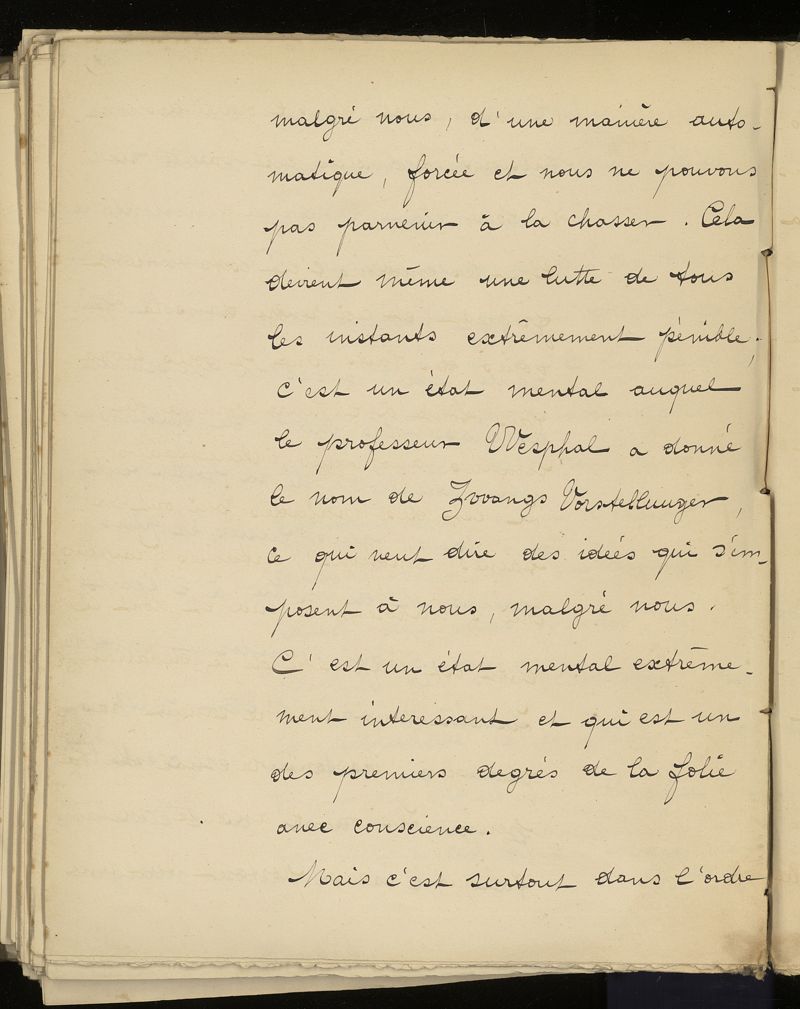 malgré nous, d'une manière auto-
matique, forcée et nous ne pouvons
pas parvenir à la chasser. Cela
devient même une lutte de tous
les instants extrêmement pénible;
c'est un état mental auquel
le professeur Wesphal a donné
le nom de Zwangs Vorstellungen,
ce qui veut dire des idées qui s'im-
posent à nous, malgré nous.
C'est un état mental extrême-
ment interessant et qui est un
des premiers degrés de la folie
avec conscience.
Mais c'est surtout dans l'ordre